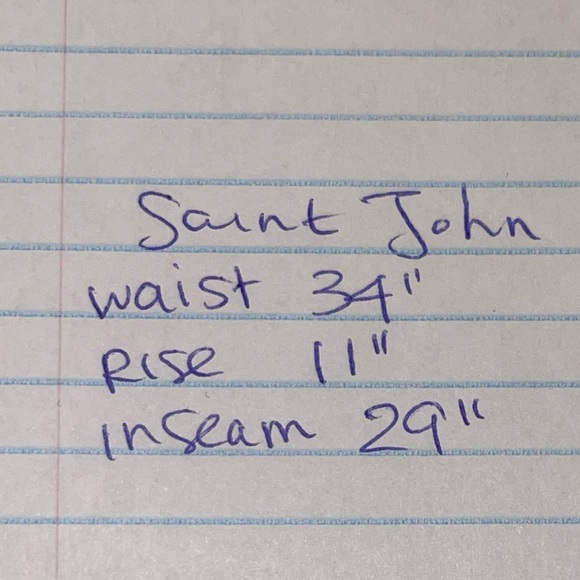 Saint John
waist 34"
Rise 11"
inseam 29"